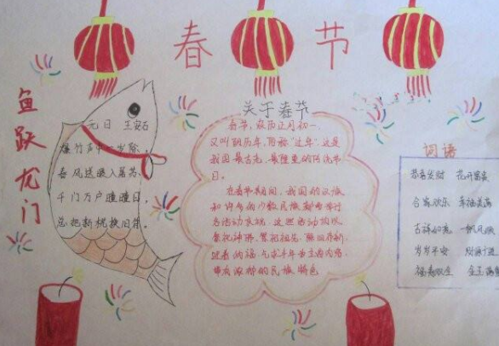 春节
鱼跃龙门
元日 王安石
爆竹声中一岁除
春风送暖入屠苏
千门万户曈曈日
总把新桃换旧符
关于春节
春节,农历正月初一,
又叫阴历年,俗称"过年"这是
我国最古老、最隆重的传统节
日。
在春节期间,我国的汉族
和许多少数民族都要举行
各活动
祭祀神佛、祭祖祖先、除旧布新、
迎春
带有浓郁的民族特色
词语
恭喜发财 花开富贵
合家欢乐 幸福美满
吉祥如意 一帆风顺
岁岁平安
福寿双全 金玉满堂